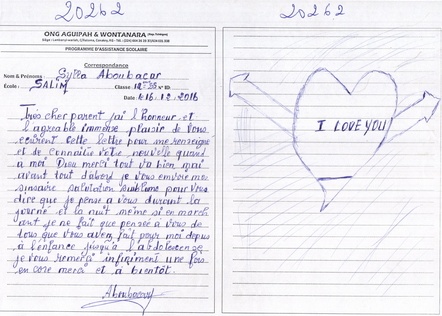 20262
ONG AGUIPAH & WONTANARA
PROGRAMME D'ASSISTANCE SCOLAIRE
Correspondance
Nom & Prénoms : Sylla Aboubacar
École : SALIM Classe : N° ID:
Date : 16.12.2016
Très cher parent j'ai l'honneur et
l'agreable immense plaisir de vous
ecirent cette lettre pour me renseigné
et se connaitre votre nouvelle quand
à moi Dieu merci tout va bien
avant tout d'abord je vous envoie mes
sinsaire salutation sublime pour vous
dire que je pense a vous durant la
journé et la nuit même si en march
ant je ne fait que pensée à vous de
tous que vous avez fait pour moi depuis
à l'enfance jusqu'à l'abdolescence
je vous remerci infiniment une fois
en core merci et à bientôt.
Aboubacar
20262
I LOVE YOU